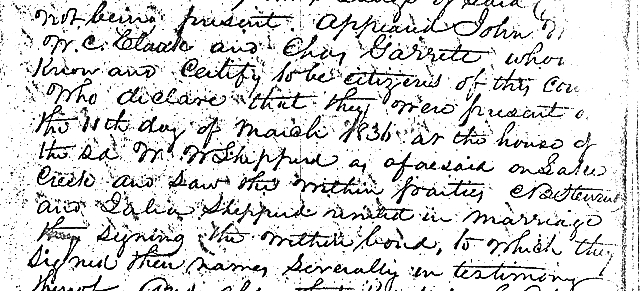 not being present. Appeard John
W. C. Claak and Chas Garrett whom
Know and Certify to be citizens of this Cou
Who declare that they were present
the 11th day of March 1836 at the house of
the sd W. W Sheppard as aforesaid on
Creek and saw the within parties
and Sheppard united in marriage
they signing the within bond, to which they
signed their names Severally in testimony